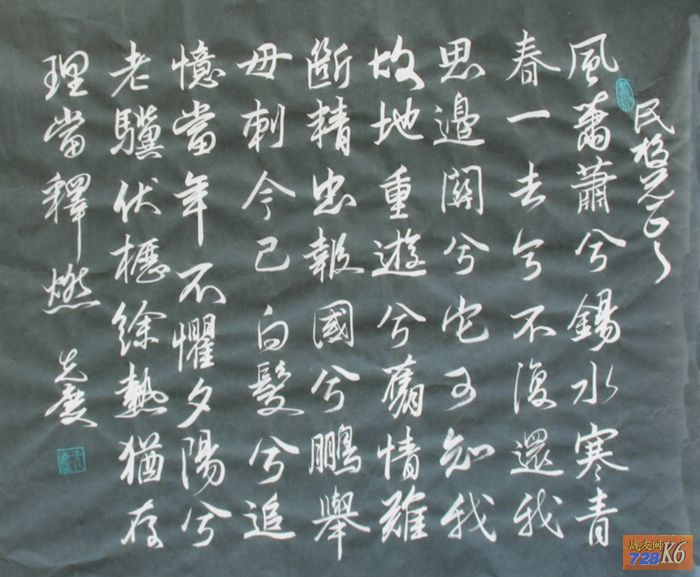 民兄正之
風蕭蕭兮錫水寒青
春一去兮不復還我
思邊關兮它可知我
故地重遊兮舊情難
斷精忠報國兮鵬舉
母刺今已白髮兮追
憶當年不懼夕陽兮
老驥伏櫪餘熱猶存
理當釋燃
战友网
728K6